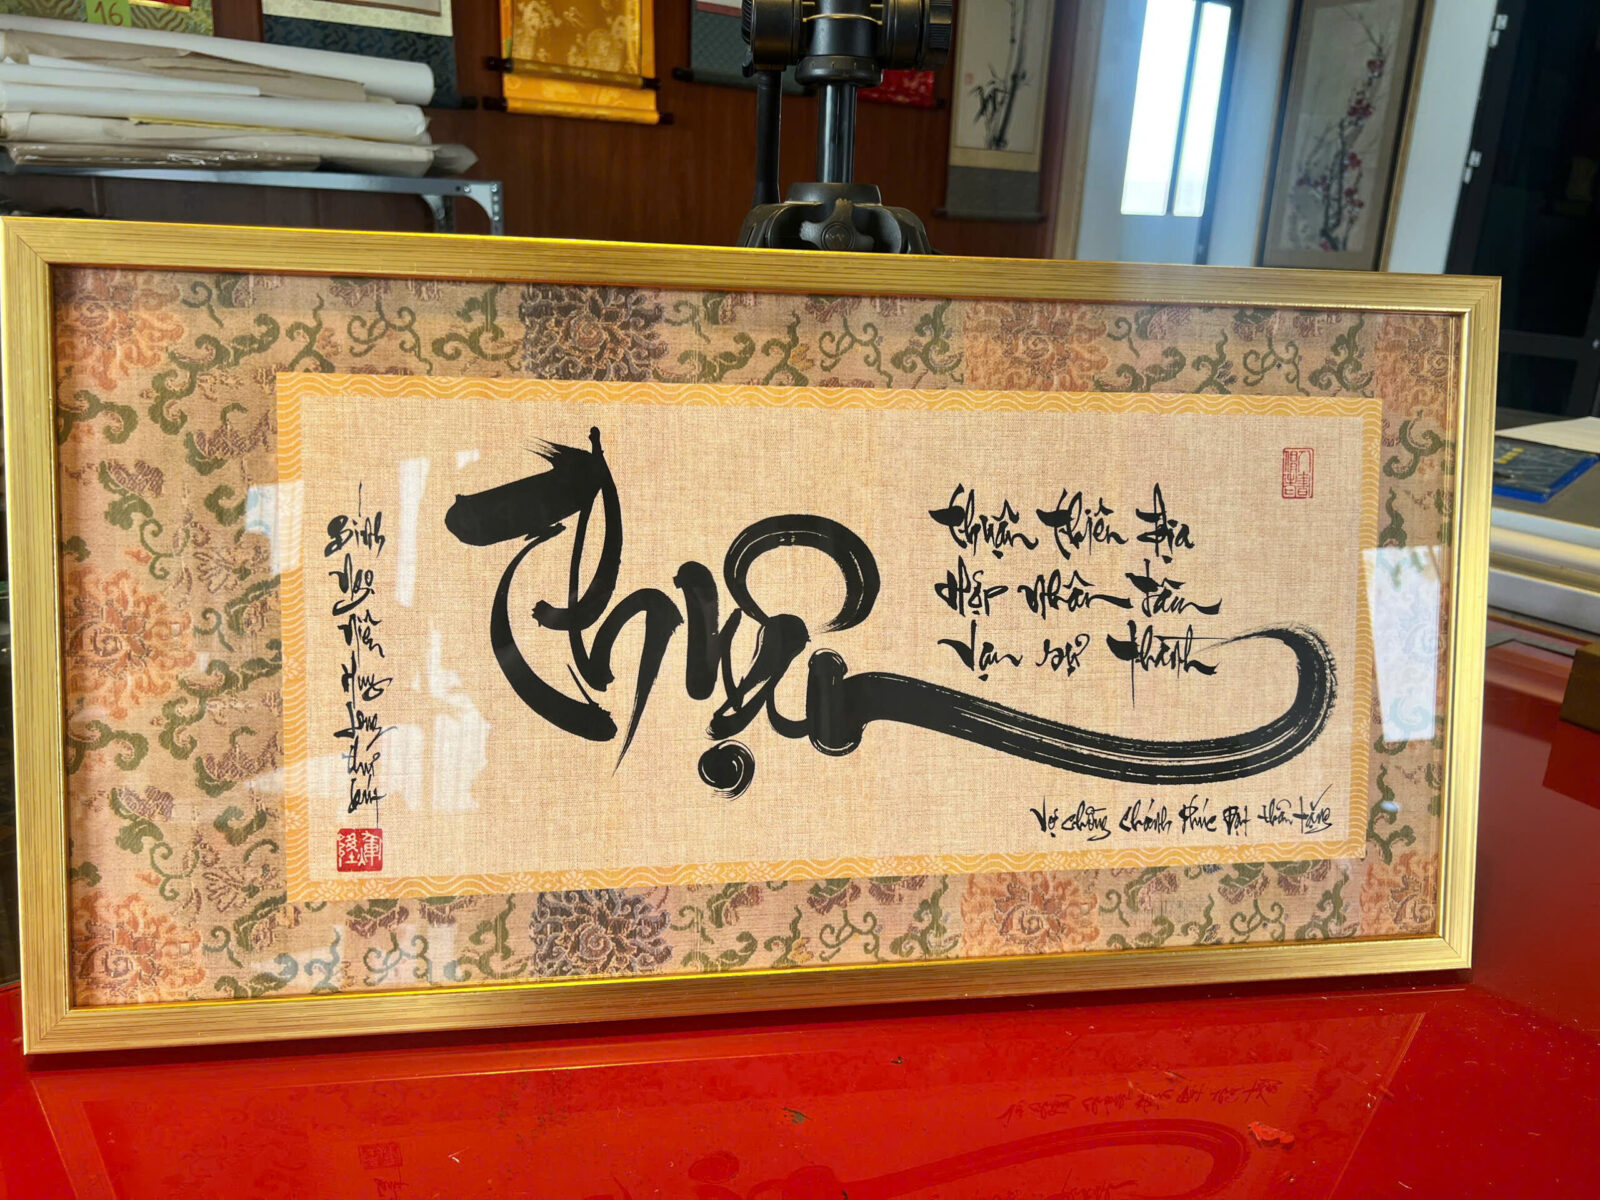 16
Thuận
Thuận Thiên Địa
Hợp Nhân Tâm
Vạn sự Thành
Vợ chồng Chánh Phúc Đạt thân tặng
Bính Ngọ niên Long thư
人書俱老